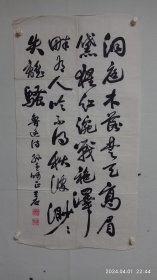 洞庭木落楚天高眉
黛猩紅涴戰袍澤
畔有人吟不得秋波渺〻
失離騷 魯迅詩
2024.04.01 22:44